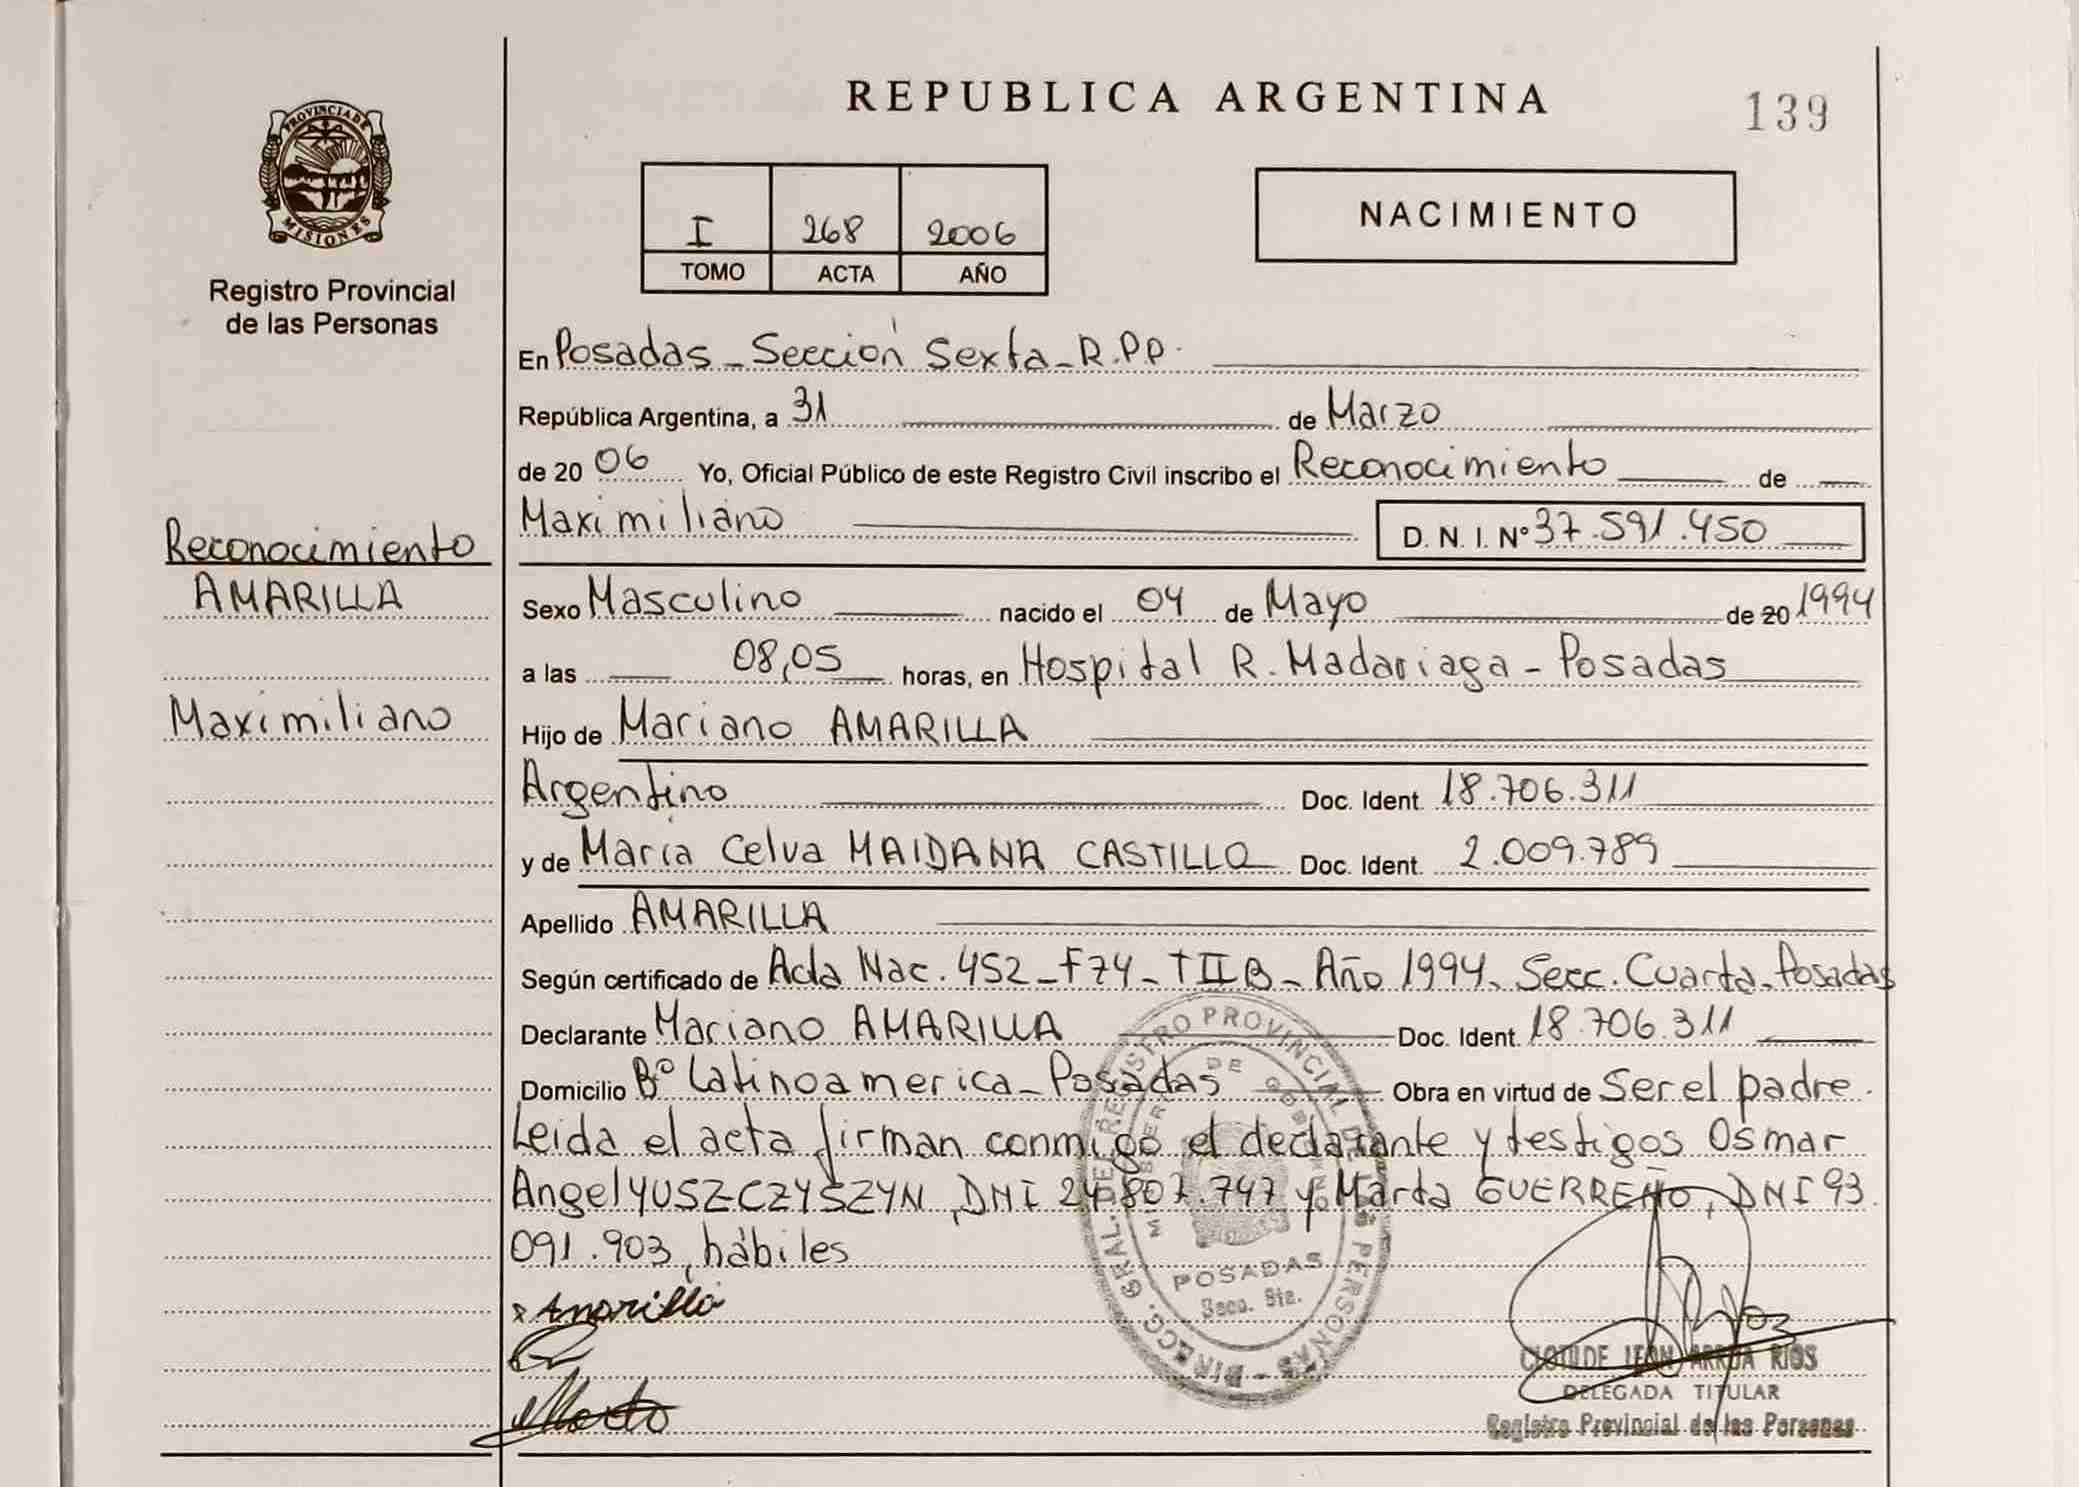 REPUBLICA ARGENTINA
139
PROVINCIA DE
MISIONES
Registro Provincial
de las Personas
I 268 2006
TOMO ACTA AÑO
NACIMIENTO
En Posadas - Sección Sexta - R.P.P.
República Argentina, a 31 de Marzo
de 20 06 Yo, Oficial Público de este Registro Civil inscribo el Reconocimiento de
Maximiliano D. N. I. Nº 37.591.450
Reconocimiento
AMARILLA
Maximiliano
Sexo Masculino nacido el 04 de Mayo de 20 1994
a las 08,05 horas, en Hospital R. Madariaga - Posadas
Hijo de Mariano AMARILLA
Argentino Doc. Ident. 18.706.311
y de María Celva MAIDANA CASTILLO Doc. Ident. 2.009.789
Apellido AMARILLA
Según certificado de Acta Nac. 452 - F74 - TIIB - Año 1994. Secc. Cuarta - Posadas
Declarante Mariano AMARILLA Doc. Ident. 18.706.311
Domicilio Bº Latinoamerica - Posadas Obra en virtud de Ser el padre.
Leida el acta firman conmigo el declarante y testigos Osmar
Angel YUSZCZYSZYN, DNI 24.807.747 y Marta GUERREÑO, DNI 93.
091.903, hábiles
x Amarilla
DIRECC. GRAL. DEL REGISTRO PROVINCIAL DE LAS PERSONAS
MINISTERIO DE GOBIERNO
POSADAS
Secc. 6ta.
CLOTILDE LEON ARRUA RIOS
DELEGADA TITULAR
Registro Provincial de las Personas